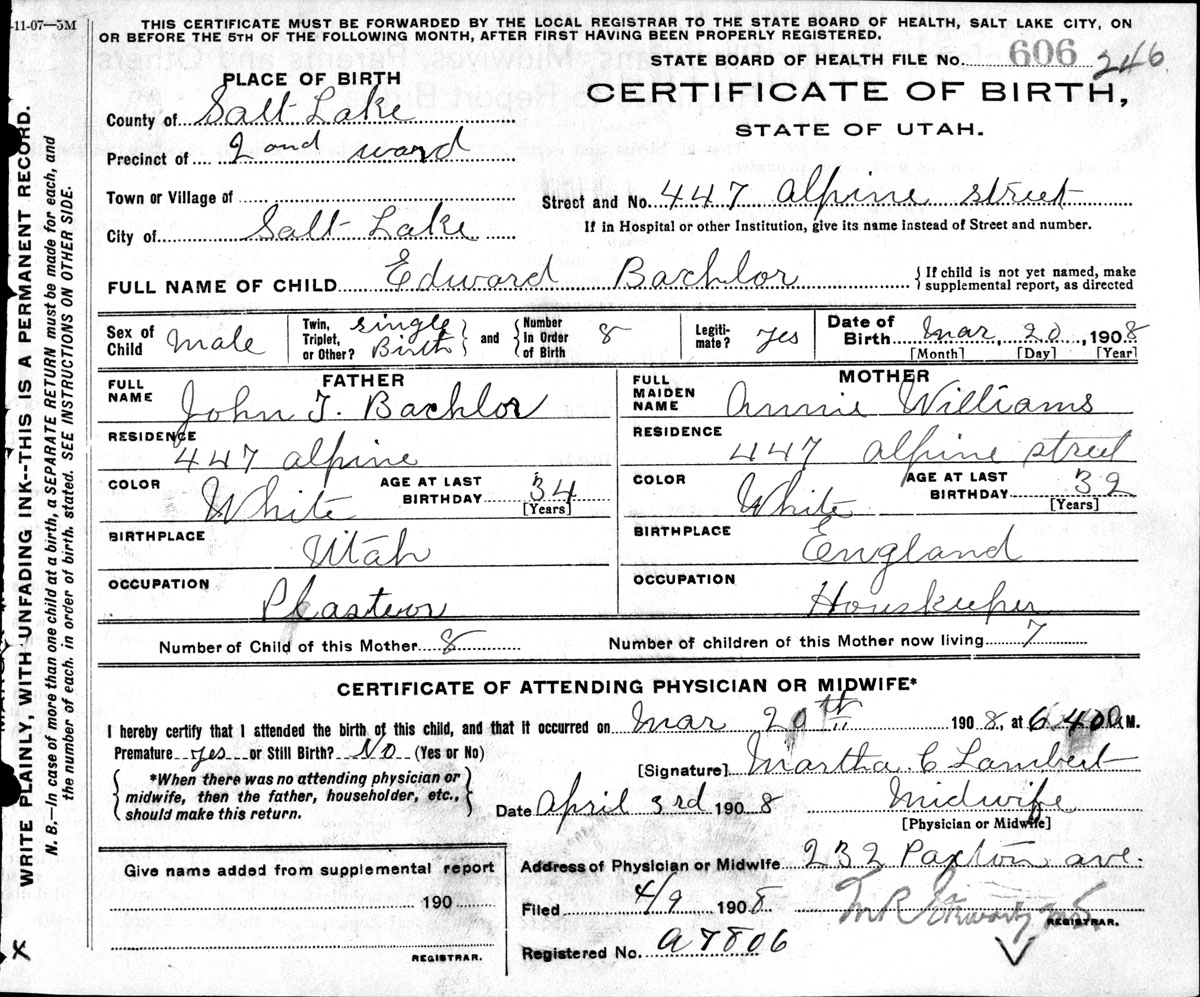 -11-07—5M
THIS CERTIFICATE MUST BE FORWARDED BY THE LOCAL REGISTRAR TO THE STATE BOARD OF HEALTH, SALT LAKE CITY, ON
OR BEFORE THE 5TH OF THE FOLLOWING MONTH, AFTER FIRST HAVING BEEN PROPERLY REGISTERED.
STATE BOARD OF HEALTH FILE No. 606 246
PLACE OF BIRTH
CERTIFICATE OF BIRTH,
STATE OF UTAH.
County of Salt Lake
Precinct of 2ond ward
Town or Village of
Street and No. 447 alpine street
City of Salt Lake
If in Hospital or other Institution, give its name instead of Street and number.
FULL NAME OF CHILD Edward Bachlor
{ If child is not yet named, make
supplemental report, as directed
Sex of Child Male
Twin, Triplet, or Other? single Birth
and
Number In Order of Birth 8
Legiti-mate? Yes
Date of Birth Mar, 20, 1908
[Month] [Day] [Year]
FATHER
FULL NAME John T. Bachlor
RESIDENCE 447 alpine
COLOR White
AGE AT LAST BIRTHDAY 34
[Years]
BIRTHPLACE Utah
OCCUPATION Plasteror
MOTHER
FULL MAIDEN NAME Annie Williams
RESIDENCE 447 alpine street
COLOR White
AGE AT LAST BIRTHDAY 32
[Years]
BIRTHPLACE England
OCCUPATION Houskeeper
Number of Child of this Mother 8
Number of children of this Mother now living 7
CERTIFICATE OF ATTENDING PHYSICIAN OR MIDWIFE*
I hereby certify that I attended the birth of this child, and that it occurred on Mar 20th 1908, at 6 40 a M.
Premature yes or Still Birth? No (Yes or No)
*When there was no attending physician or
midwife, then the father, householder, etc.,
should make this return.
[Signature] Martha C Lambert
Date April 3rd 1908
Midwife
[Physician or Midwife]
Give name added from supplemental report
190
REGISTRAR.
Address of Physician or Midwife 232 Paxton ave.
Filed 4/9 1908
REGISTRAR.
Registered No. A7806
WRITE PLAINLY, WITH UNFADING INK--THIS IS A PERMANENT RECORD.
N. B.—In case of more than one child at a birth, a SEPARATE RETURN must be made for each, and
the number of each, in order of birth, stated. SEE INSTRUCTIONS ON OTHER SIDE.
X